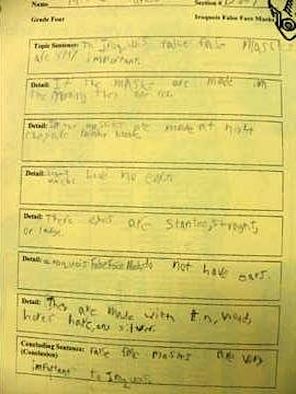 Name
Section #
Grade Four Iroquois False Face Masks
Topic Sentence: In Iroquois False Masks
are very important.
Detail: If the masks are made in
the morning they are red.
Detail: If the masks are made at night
they are black.
Detail: have no ears
Detail: There eyes are staring, straight,
or large.
Detail: Iroquois False Face Masks do not have ears.
Detail: They are made with tin, wood,
horse hair, and silver.
Concluding Sentence: False face masks are very
(Conclusion) important to Iroquois.